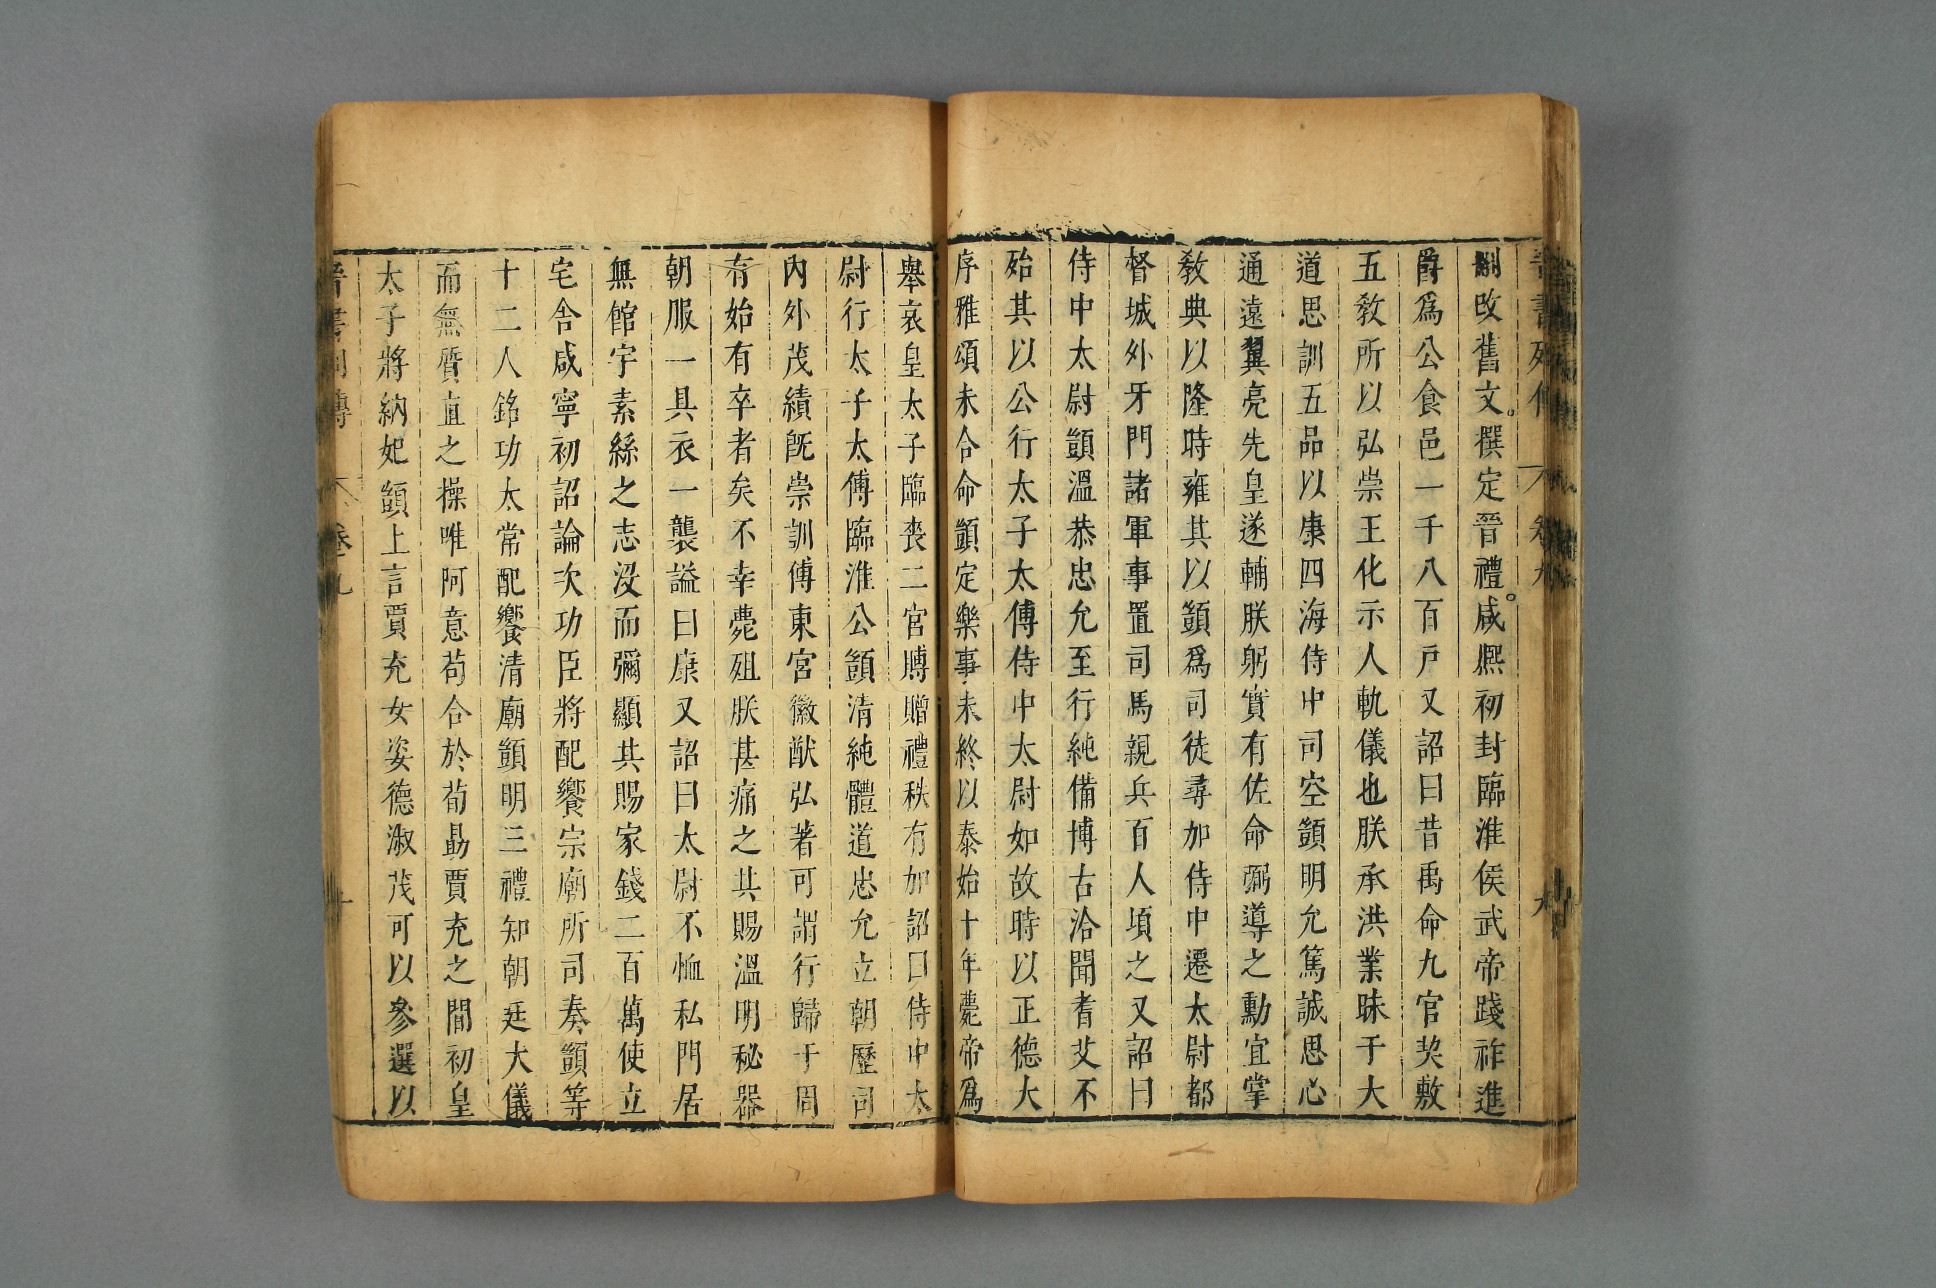 晉書列傳 卷九 九
刪改舊文撰定晉禮咸熙初封臨淮侯武帝踐祚進
爵爲公食邑一千八百戸又詔曰昔禹命九官契敷
五教所以弘崇王化示人軌儀也朕承洪業昧于大
道思訓五品以康四海侍中司空顗明允篤誠思心
通遠翼亮先皇遂輔朕躬實有佐命弼導之勳宜掌
教典以隆時雍其以顗爲司徒尋加侍中遷太尉都
督城外牙門諸軍事置司馬親兵百人頃之又詔曰
侍中太尉顗溫恭忠允至行純備博古洽聞耆艾不
殆其以公行太子太傅侍中太尉如故時以正德大
序雅頌未合命顗定樂事未終以泰始十年薨帝爲
舉哀皇太子臨喪二宮賻贈禮秩有加詔曰侍中太
尉行太子太傅臨淮公顗清純體道忠允立朝歷司
內外茂績旣崇訓傅東宮徽猷弘著可謂行歸于周
有始有卒者矣不幸薨殂朕甚痛之其賜溫明秘器
朝服一具衣一襲謚曰康又詔曰太尉不恤私門居
無館宇素絲之志沒而彌顯其賜家錢二百萬使立
宅舍咸寧初詔論次功臣將配饗宗廟所司奏顗等
十二人銘功太常配饗清廟顗明三禮知朝廷大儀
而無質直之操唯阿意苟合於荀勗賈充之間初皇
太子將納妃顗上言賈充女姿德淑茂可以參選以
晉書列傳 卷九 十